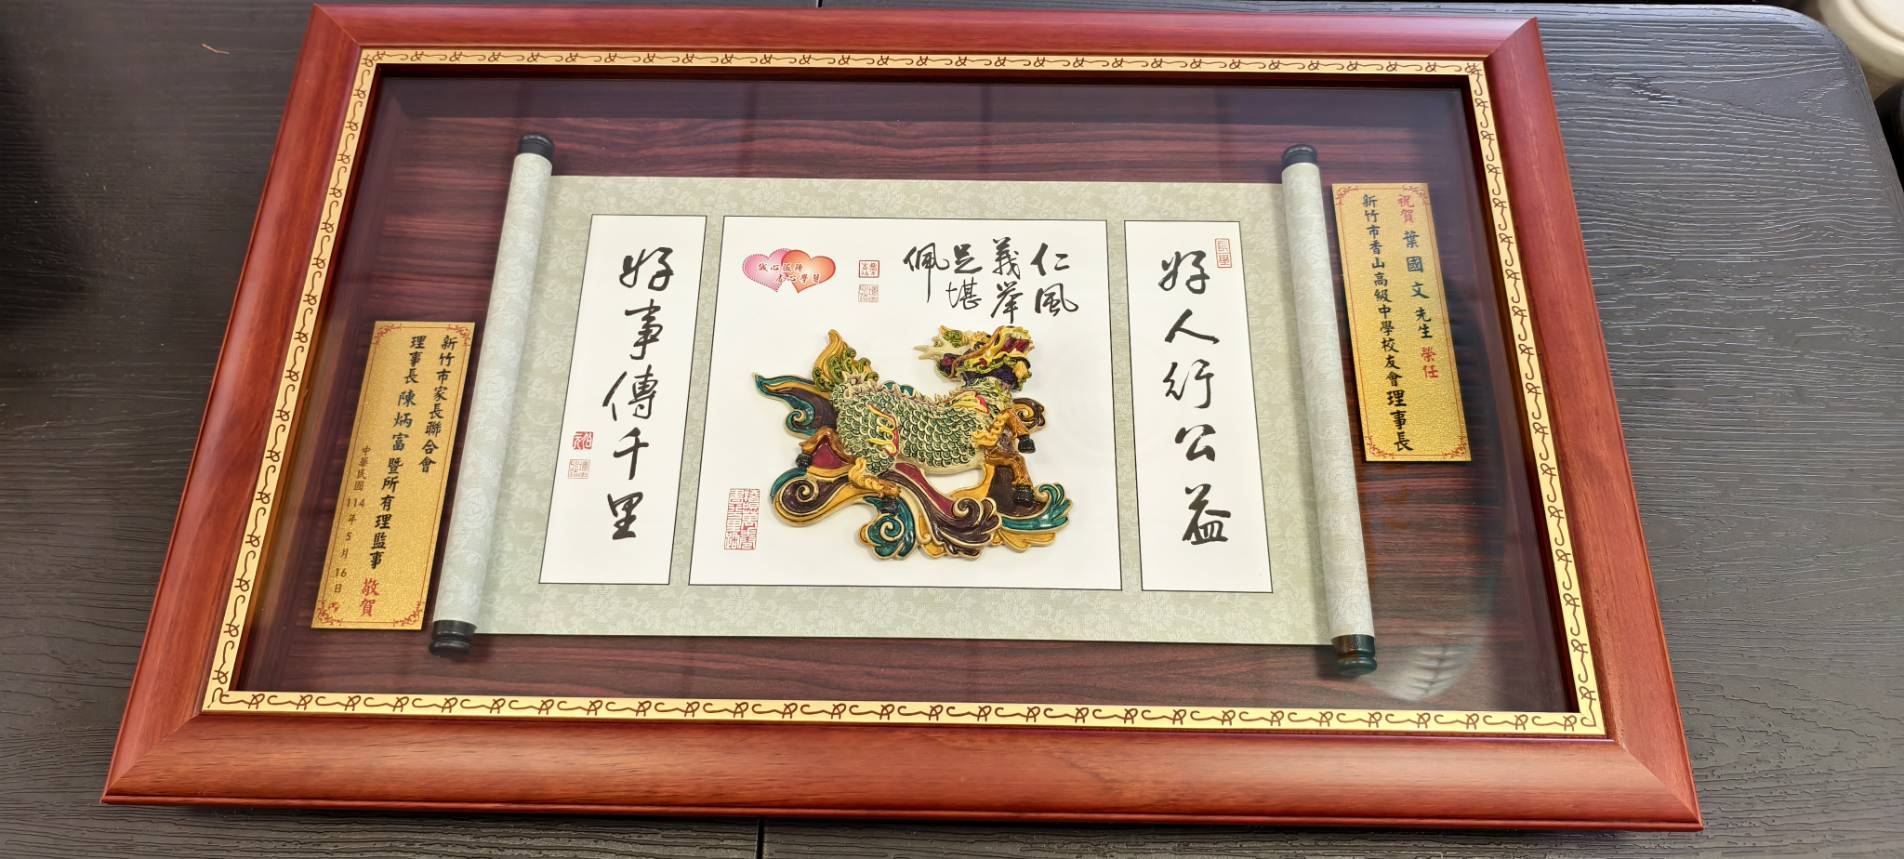 祝賀 葉國文先生 榮任
新竹市香山高級中學校友會理事長
好人行公益
仁風
義举
足堪
佩
好事傳千里
新竹市家長聯合會
理事長 陳炳富 暨所有理監事 敬賀
中華民國 114年 5月 16日